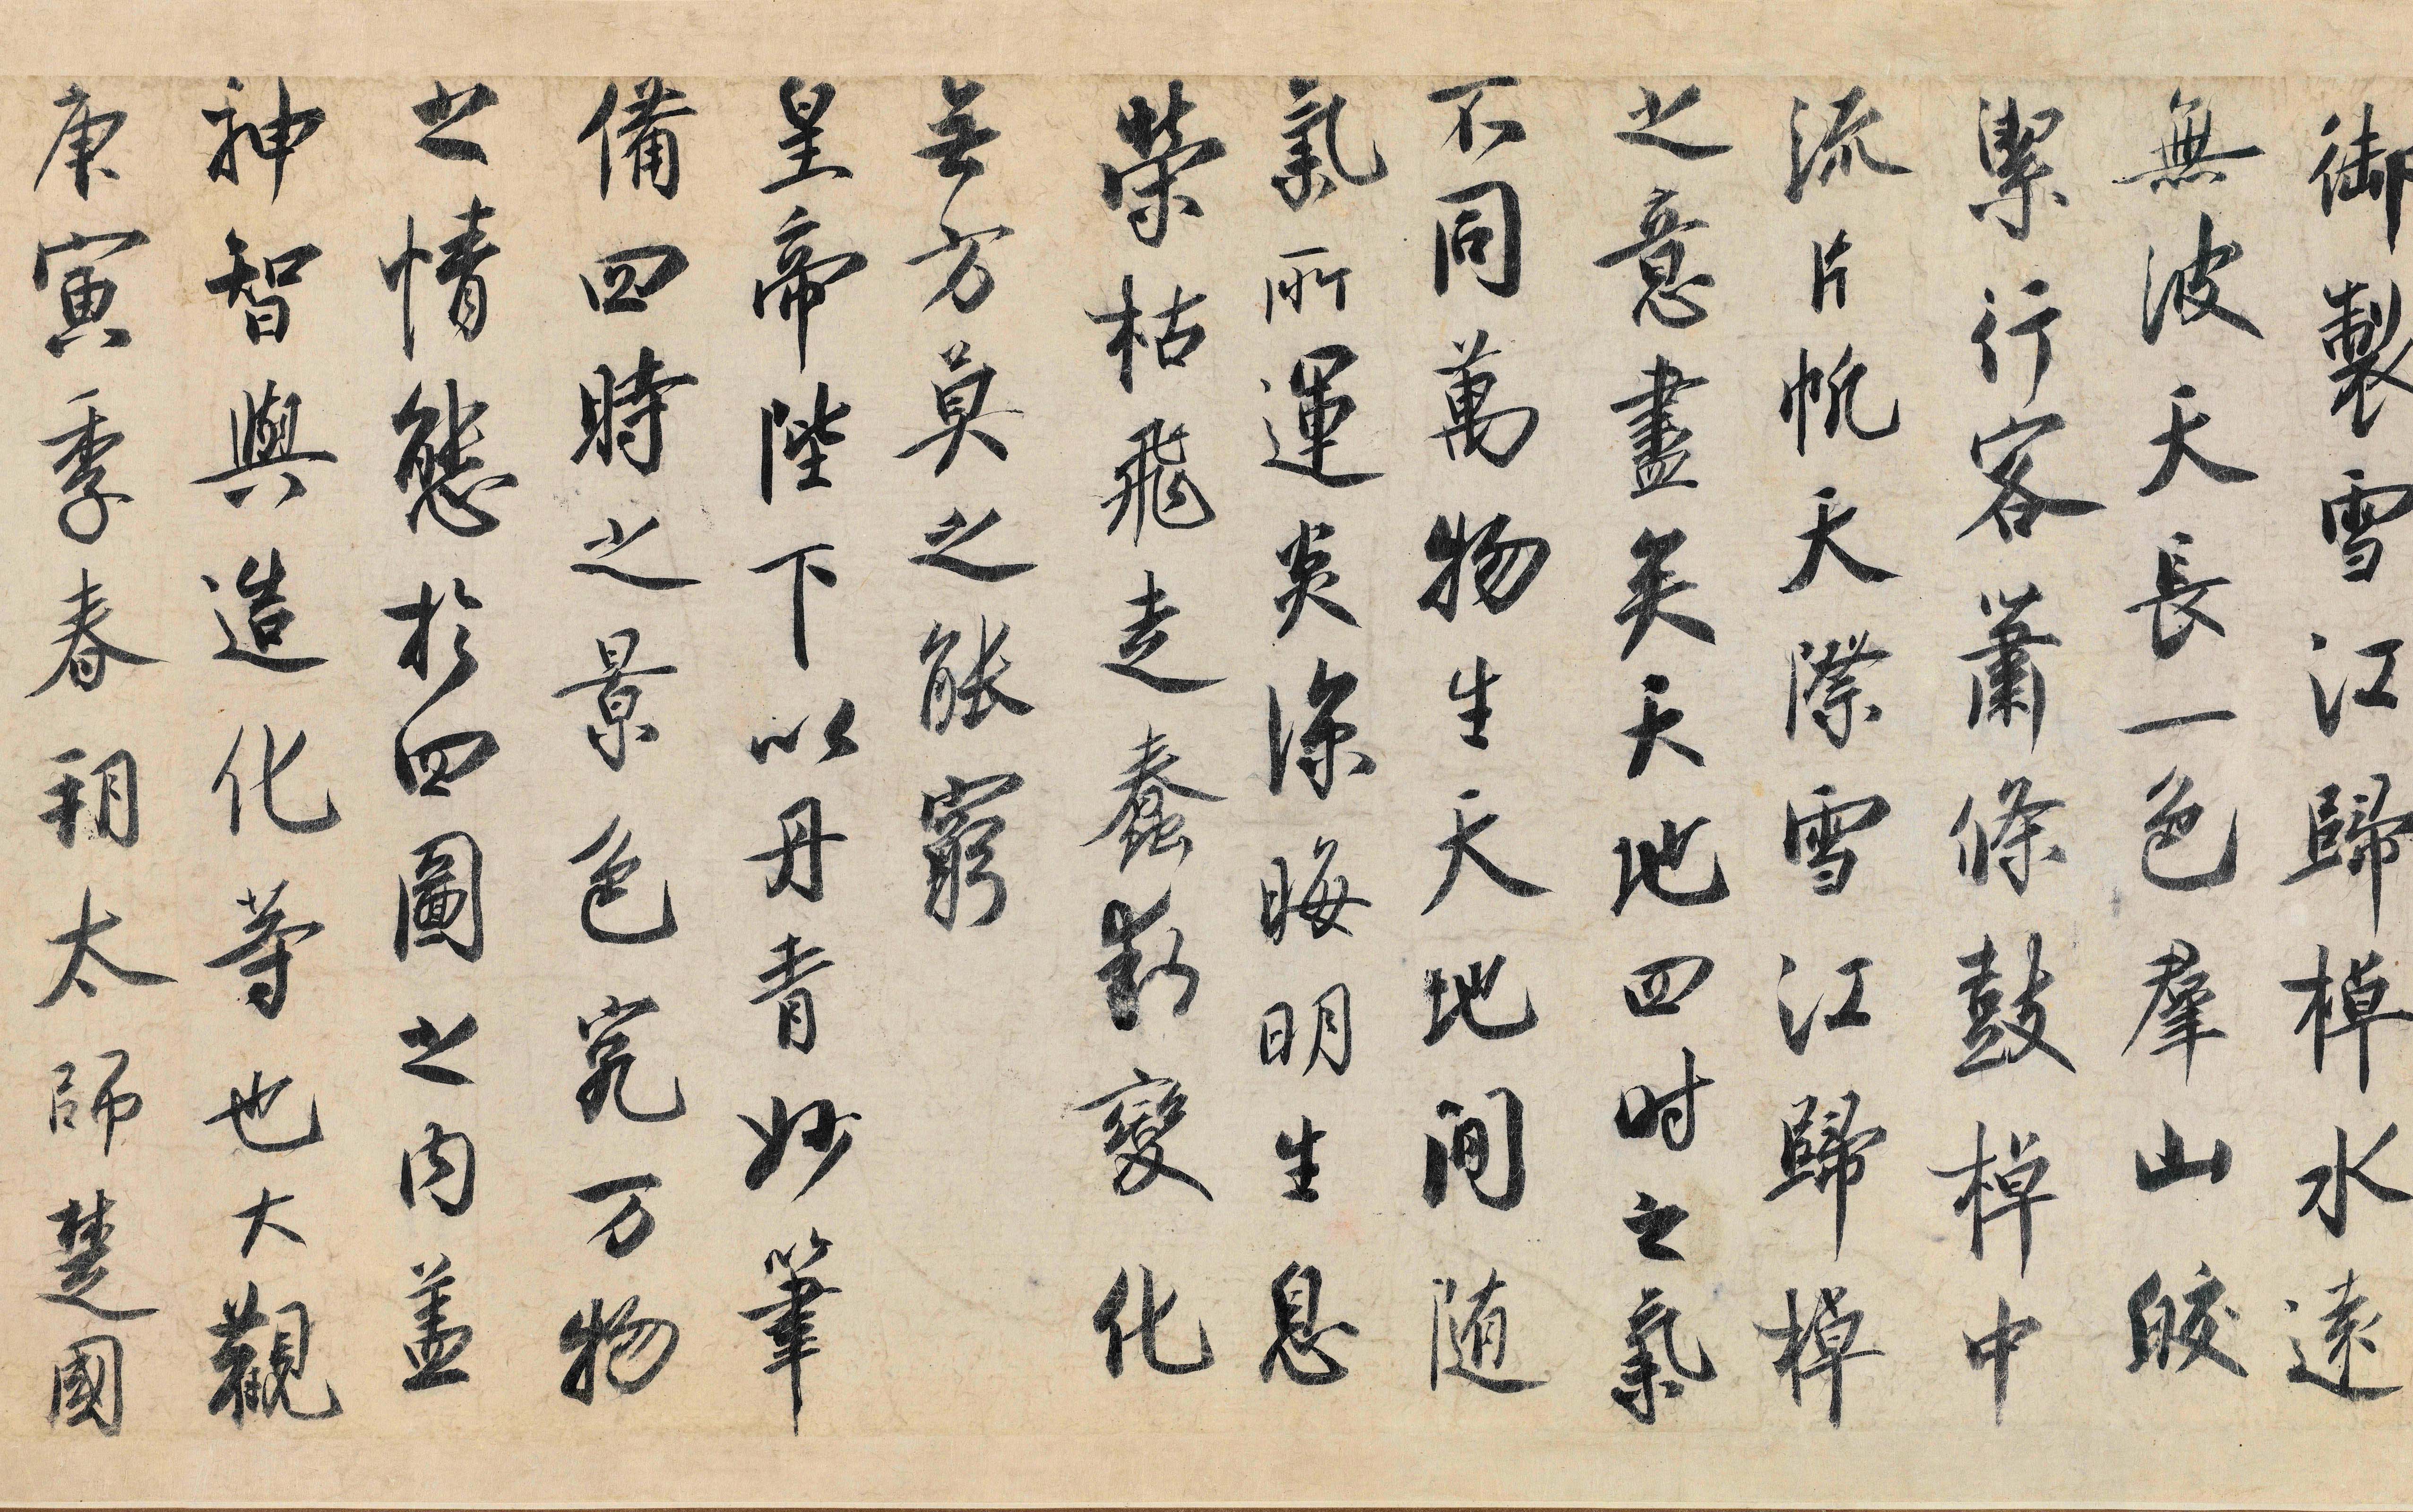 御製雪江歸棹水遠
無波天長一色羣山皎
潔行客蕭條鼓棹中
流片帆天際雪江歸棹
之意盡矣天地四时之氣
不同萬物生天地间随
氣所運炎涼晦明生息
榮枯飛走蠢動變化
無方莫之能窮
皇帝陛下以丹青妙筆
備四時之景色究万物
之情態於四圖之内盖
神智與造化等也大觀
庚寅季春朔太師楚國